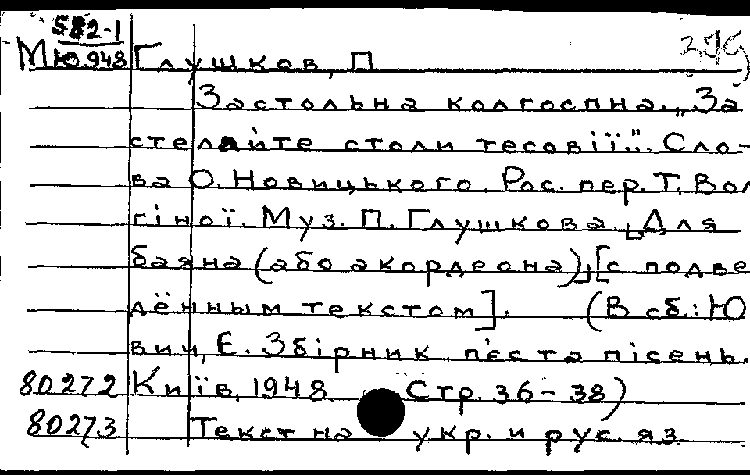 582-1
Мю.948 Глушков, П
Застольна колгоспна. „За
стеляйте столи тесовії". Сло-
ва О. Новицького. Рос. пер. Т. Вол
гіної. Муз. П. Глушкова [Для
баяна (або акордеона)], [с подве
дённым текстом]. (В сб.: Ю
вич, Є. Збірник п'єс та пісень.
80272 Київ, 1948 Стр. 36-38)
80273 Текст на укр. и рус. яз.